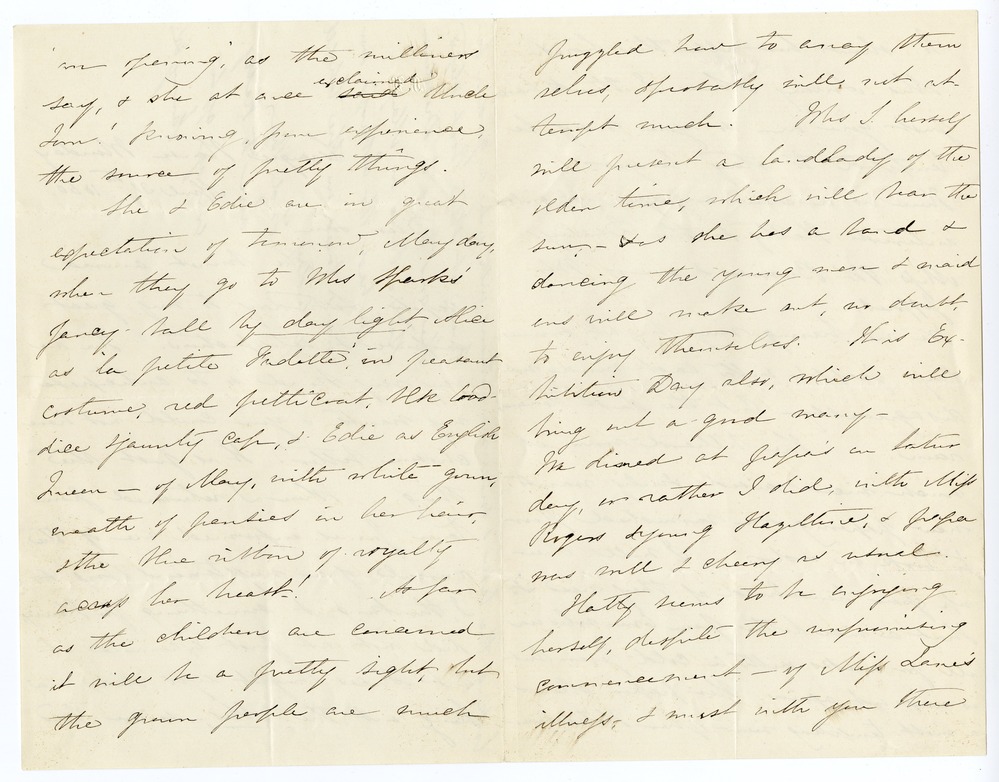 'an opening', as the milliners
say, & she at once exclaimed said Uncle
Tom! knowing, from experience,
the source of pretty things.
She & Edie are in great
expectation of tomorrow, May day,
when they go to Mrs Sparks'
fancy-ball by day light, Alice
as 'la petite Fadette', in peasant
costume, red petticoat, blk bod-
dice & jaunty cap, & Edie as English
Queen - of May, with white gown,
wreath of pansies in her hair,
& the blue ribbon of royalty
across her breast! As far
as the children are concerned
it will be a pretty sight, but
the grown people are much
puzzled how to array them
selves, & probably will not at-
tempt much. Mrs S. herself
will present a landlady of the
olden time, which will bear the
sun, - & as she has a band &
dancing the young men & maid
ens will make out, no doubt,
to enjoy themselves. It is Ex-
hibition Day also, which will
bring out a good many -
We dined at papa's on Satur
day, or rather I did, with Miss
Rogers & young Hazeltine, & papa
was well & cheery as usual.
Hatty seems to be enjoying
herself, despite the unpromising
commencement - of Miss Lane's
illness, & must with you there